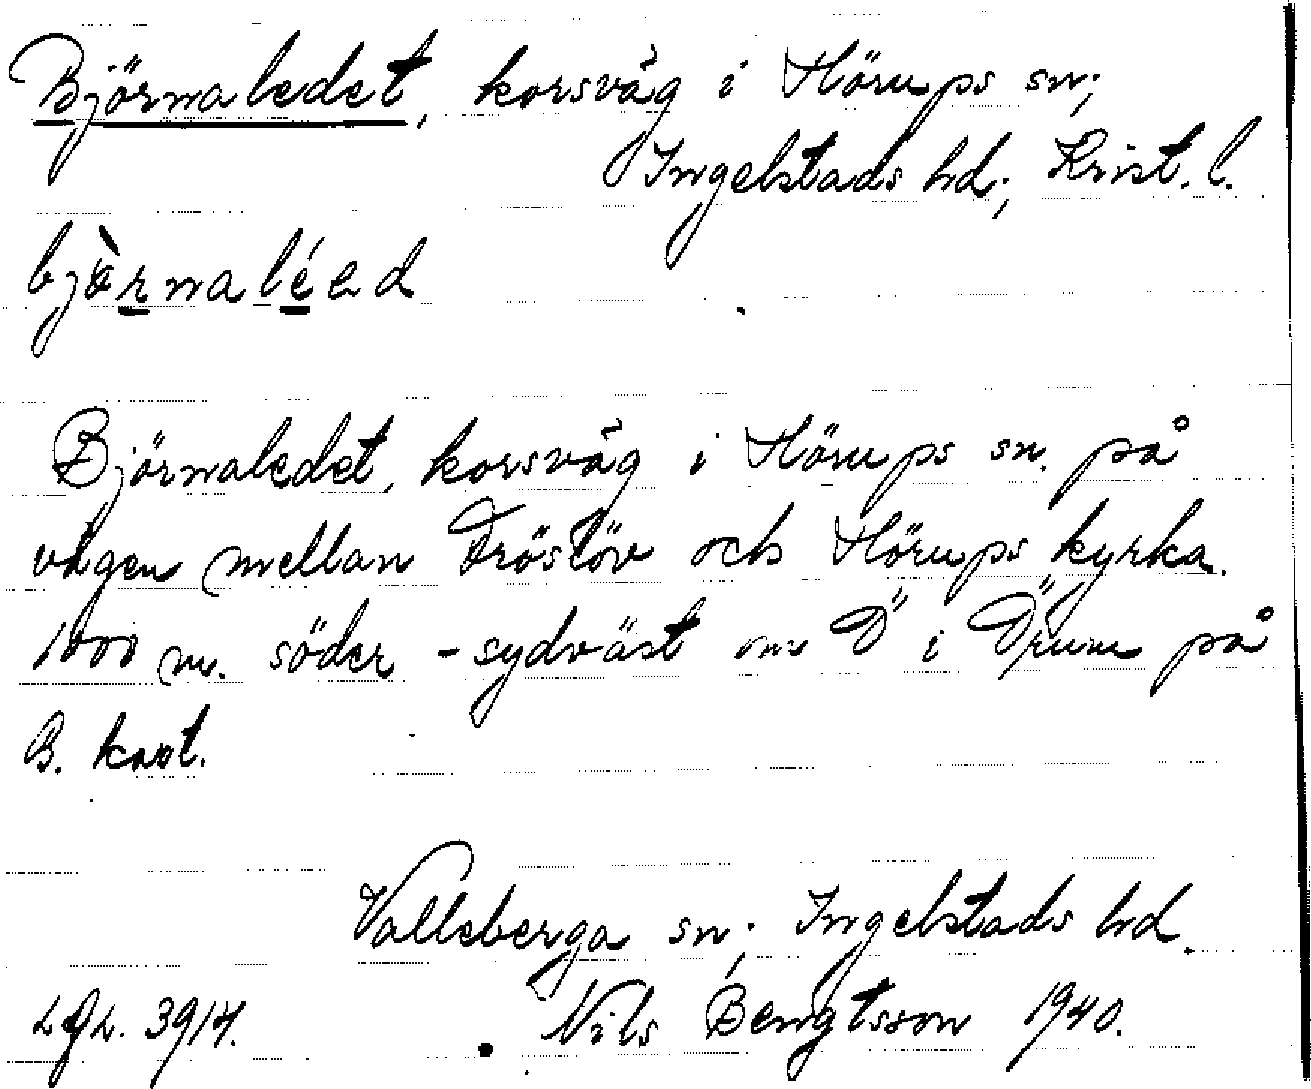 Björnaledet, korsväg i Hörups sn;
Ingelstads hd; Krist. l.
bjò̱rnaléed
Björnaledet, korsväg i Hörups sn. på
vägen mellan Fröslöv och Hörups kyrka.
1000 m. söder - sydväst om Ö i Örum på
B. kart.
Valleberga sn; Ingelstads hd.
LGL. 3914. Nils Bengtsson 1940.